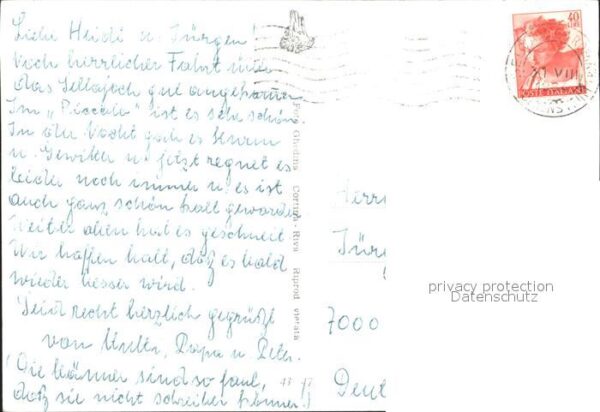 Liebe Heidi u. Jürgen!
Nach herrlicher Fahrt über
das Sellajoch gut angekommen.
Im „Piccolo" ist es sehr schön.
In der Nacht gab es Sturm
u. Gewitter u. jetzt regnet es
leider noch immer u. es ist
auch ganz schön kalt geworden
Weiter oben hat es geschneit
Wir hoffen halt, daß es bald
wieder besser wird.
Seid recht herzlich gegrüßt
von Mutti, Papa u. Peter.
(Die Männer sind so faul,
daß sie nicht schreiben können!)
Foto Ghedina Cortina - Riva Riprod. vietata
40
POSTE ITALIANE
VIII
Herrn
Jür
7000
Deut
privacy protection
Datenschutz